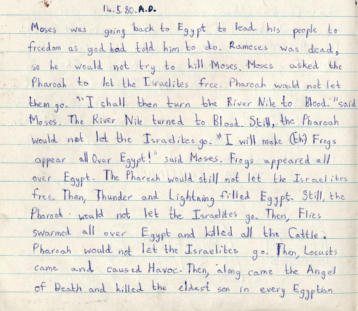 14.5.80. A.D.
Moses was going back to Egypt to lead his people to
freedom as god had told him to do. Rameses was dead,
so he would not try to kill Moses. Moses asked the
Pharoah to let the Israelites free. Pharoah would not let
them go. "I shall then turn the River Nile to Blood." said
Moses. The River Nile turned to Blood. Still, the Pharoah
would not let the Israelites go. "I will make (th) Frogs
appear all Over Egypt!" said Moses. Frogs appeared all
over Egypt. The Pharoah would still not let the Israelites
free. Then, Thunder and Lightning filled Egypt. Still, the
Pharoah would not let the Israelites go. Then, Flies
swarmed all over Egypt and killed all the Cattle.
Pharoah would not let the Israelites go. Then, Locusts
came and caused Havoc. Then, along came the Angel
of Death and killed the eldest son in every Egyptian